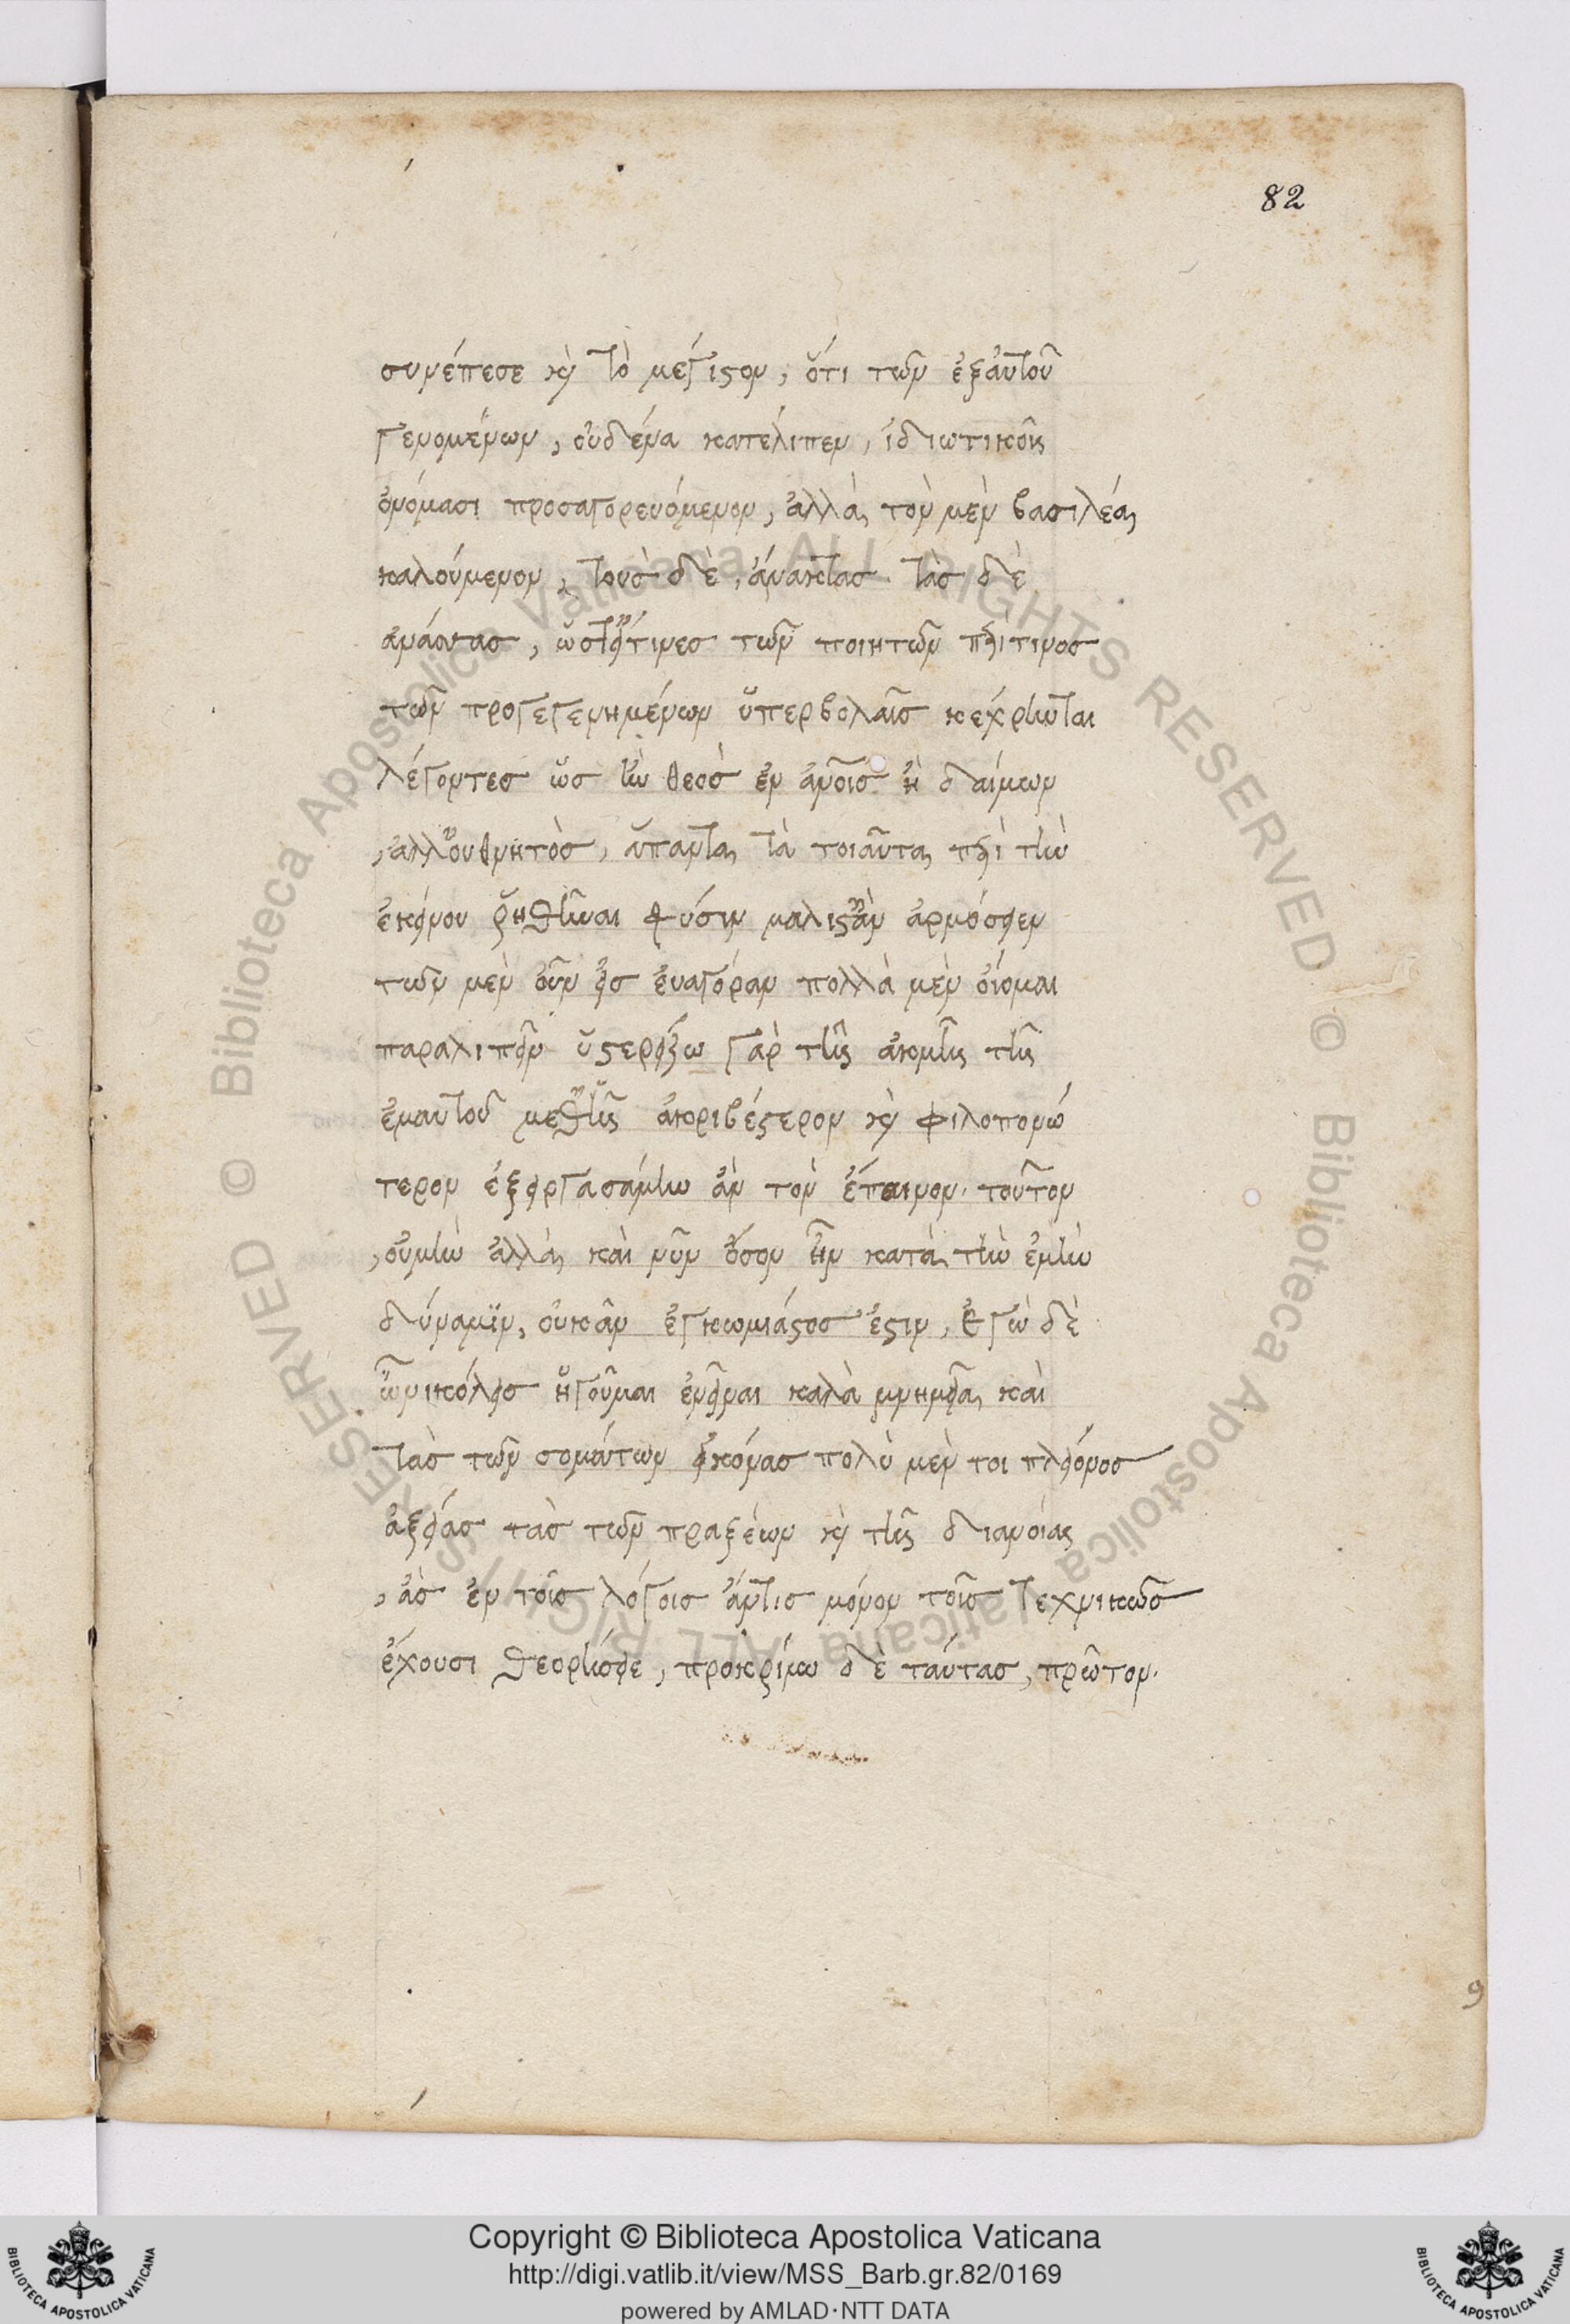 82
συνέπεσε κὴ τὸ μέγιστον, ὅτι τῶν ἐξαὐτοῦ
γενομένων, οὐδένα κατέλιπεν, ἰδιωτικοῖς
ὀνόμασι προσαγορευόμενον, ἀλλὰ τὸν μὲν βασιλέα
καλούμενον, τοὺσ δὲ, ἄνακτασ. τὰσ δὲ
ἀνάσσασ, ὥστ' εἴτινεσ τῶν ποιητῶν περίτινοσ
τῶν προγεγενημένων ὑπερβολαῖσ κέχρηνται
λέγοντεσ ὡσ ἦν θεὸσ ἐν ἀνοισ ἢ δαίμων
ἀλλ' οὐθνητὸσ, ἅπαντα τὰ τοιαῦτα περὶ τὴν
ἐκείνου ῥηθῆναι φύσιν μαλιστ' ἂν ἁρμόσειεν
τῶν μὲν οὖν εἰσ εὐαγόραν πολλὰ μὲν οἴομαι
παραλιπεῖν ὑστερείζω γὰρ τῆς ἀκμῆς τῆς
ἐμαυτοῦ μεθ' ἧς ἀκριβέστερον κὴ φιλοπονώ
τερον ἐξειργασάμην ἂν τὸν ἔπαινον τοῦτον
οὐμὴν ἀλλὰ καὶ νῦν ὅσον ἦν κατὰ τὴν ἐμὴν
δύναμιν, οὐκἂν ἐγκωμιάστοσ ἐστιν, Ἐγὼ δὲ
ὦνικόλεισ ἡγοῦμαι ἐνεῖναι καλὰ μνημεῖα καὶ
τὰσ τῶν σομάτων εἰκόνασ πολὺ μὲν τοι πλείονοσ
ἀξείασ τὰσ τῶν πραξέων κὴ τῆς διανοίας
ἃσ ἐν τοῖσ λόγοισ ἄντισ μόνον τοῖσ τεχνικῶσ
ἔχουσι θεορήσειε, προκρίνω δὲ ταύτασ, πρῶτον.
9
BIBLIOTECA APOSTOLICA VATICANA
Copyright © Biblioteca Apostolica Vaticana
http://digi.vatlib.it/view/MSS_Barb.gr.82/0169
powered by AMLAD·NTT DATA
BIBLIOTECA APOSTOLICA VATICANA
© Biblioteca Apostolica Vaticana ALL RIGHTS RESERVED
© Biblioteca Apostolica Vaticana ALL RIGHTS RESERVED